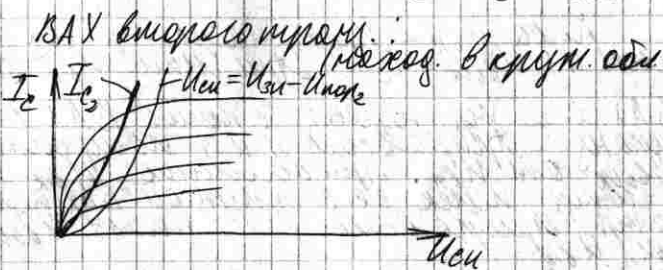 ВАХ второго тран.:
наход. в крут. обл
Iс Iс₂ Uси = Uзи - Uпор₂
Uси